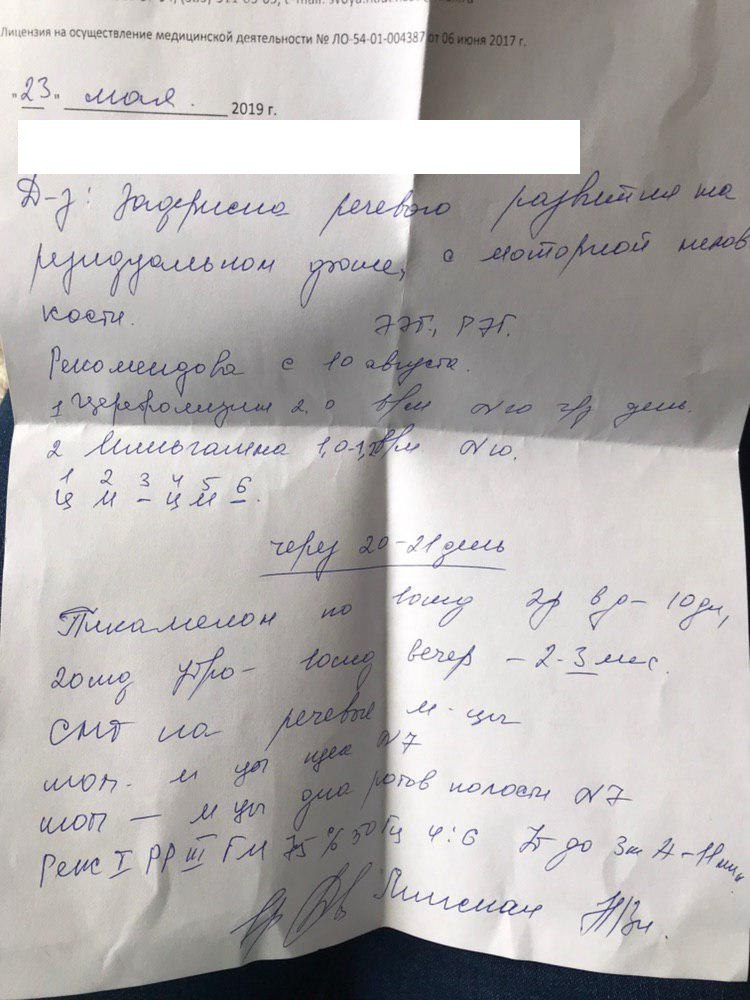 Лицензия на осуществление медицинской деятельности № ЛО-54-01-004387 от 06 июня 2017 г.
"23" мая. 2019 г.
Д-з: Задержка речевого развития на
резидуальном фоне, с моторной нелов
кости.
ЭЭГ, РЭГ.
Рекомендова с 10 августа.
1 Церебролизин 2,0 в/м N10 ч/з день.
2 Мильгамма 1,0-1, в/м N10.
1 2 3 4 5 6
Ц М – Ц М –.
через 20-21 день
Пикамелон по 10мд 2р в д – 10дн,
20мд утро – 10мд вечер – 2-3 мес.
СМТ на речевые м-цы
щек N7
м цы дна ротов полости N7
Реж I РР III ГМ 75% 30Гц 4:6 до